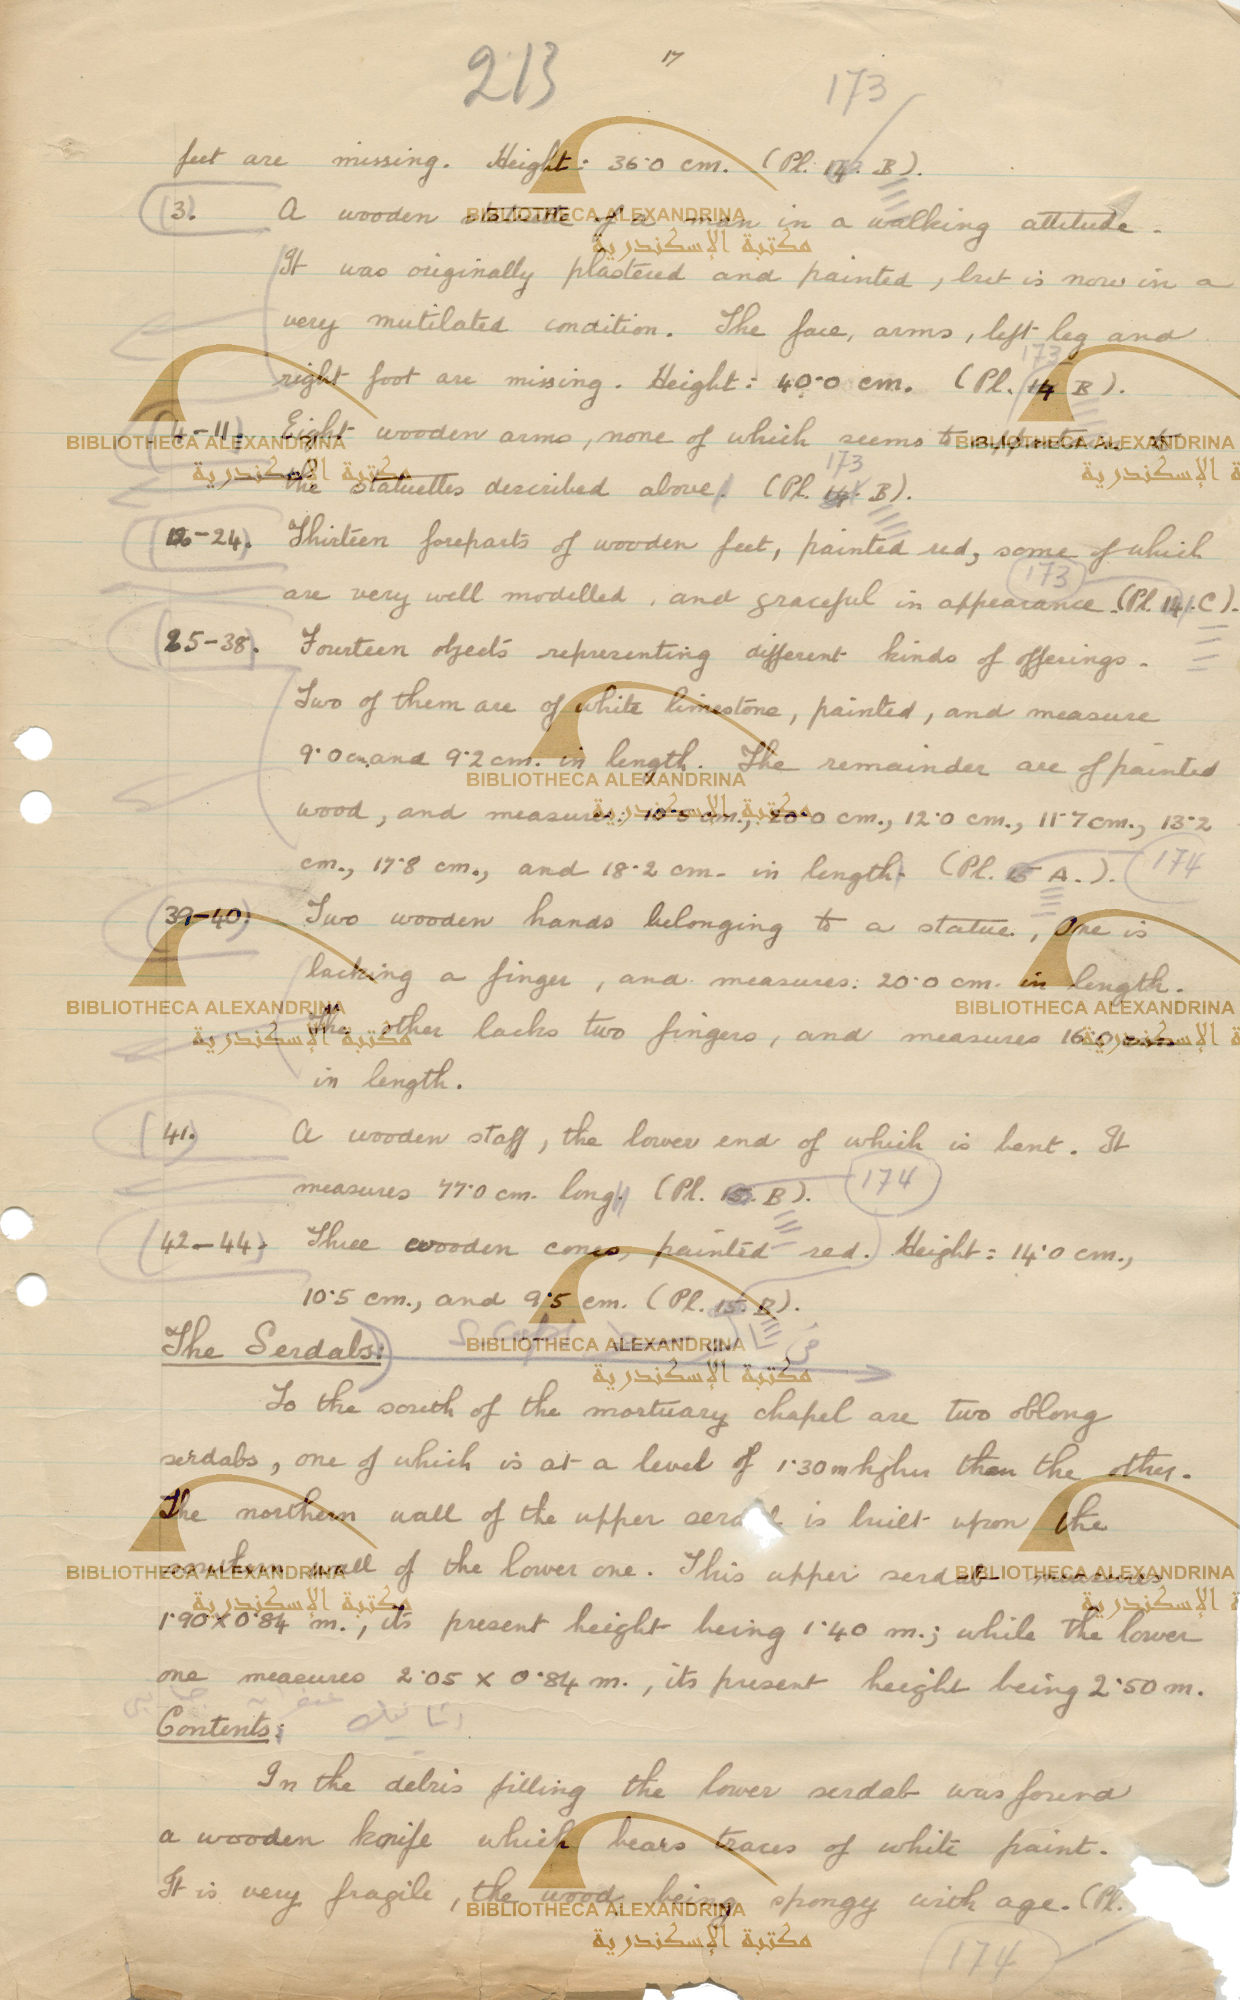 213
17
173
feet are missing. Height: 36·0 cm. (Pl. 14. B).
(3). A wooden statuette of a man in a walking attitude.
It was originally plastered and painted, but is now in a
very mutilated condition. The face, arms, left leg and
173
right foot are missing. Height: 40·0 cm. (Pl. 14 B).
(4–11). Eight wooden arms, none of which seems to to
173
the statuettes described above. (Pl. 14. B).
(12–24). Thirteen foreparts of wooden feet, painted red, some of which
173
are very well modelled, and graceful in appearance. (Pl. 14. C).
(25–38). Fourteen objects representing different kinds of offerings.
Two of them are of white limestone, painted, and measure
9·0 cm. and 9·2 cm. in length. The remainder are of painted
wood, and measures: 10·5 cm., 20·0 cm., 12·0 cm., 11·7 cm., 13·2
cm., 17·8 cm., and 18·2 cm. in length. (Pl. 15 A.). 174
(39–40) Two wooden hands belonging to a statue, One is
lacking a finger, and measures: 20·0 cm. in length.
The other lacks two fingers, and measures 16·0 cm
in length.
(41.) A wooden staff, the lower end of which is bent. It
measures 77·0 cm. long. (Pl. 15. B). 174
(42–44). Three wooden cones, painted red. Height: 14·0 cm.,
10·5 cm., and 9·5 cm. (Pl. 15. B).
The Serdabs:
To the south of the mortuary chapel are two oblong
serdabs, one of which is at a level of 1·30 m higher than the other.
The northern wall of the upper serdab is built upon the
southern wall of the lower one. This upper serdab measures
1·90 x 0·84 m., its present height being 1·40 m.; while the lower
one measures 2·05 x 0·84 m., its present height being 2·50 m.
Contents:
In the debris filling the lower serdab was found
a wooden knife which bears traces of white paint.
It is very fragile, the wood being spongy with age. (Pl.
174
BIBLIOTHECA ALEXANDRINA
مكتبة الإسكندرية
BIBLIOTHECA ALEXANDRINA
مكتبة الإسكندرية
BIBLIOTHECA ALEXANDRINA
مكتبة الإسكندرية
BIBLIOTHECA ALEXANDRINA
مكتبة الإسكندرية
BIBLIOTHECA ALEXANDRINA
مكتبة الإسكندرية
BIBLIOTHECA ALEXANDRINA
مكتبة الإسكندرية
BIBLIOTHECA ALEXANDRINA
مكتبة الإسكندرية
BIBLIOTHECA ALEXANDRINA
مكتبة الإسكندرية
BIBLIOTHECA ALEXANDRINA
مكتبة الإسكندرية
BIBLIOTHECA ALEXANDRINA
مكتبة الإسكندرية